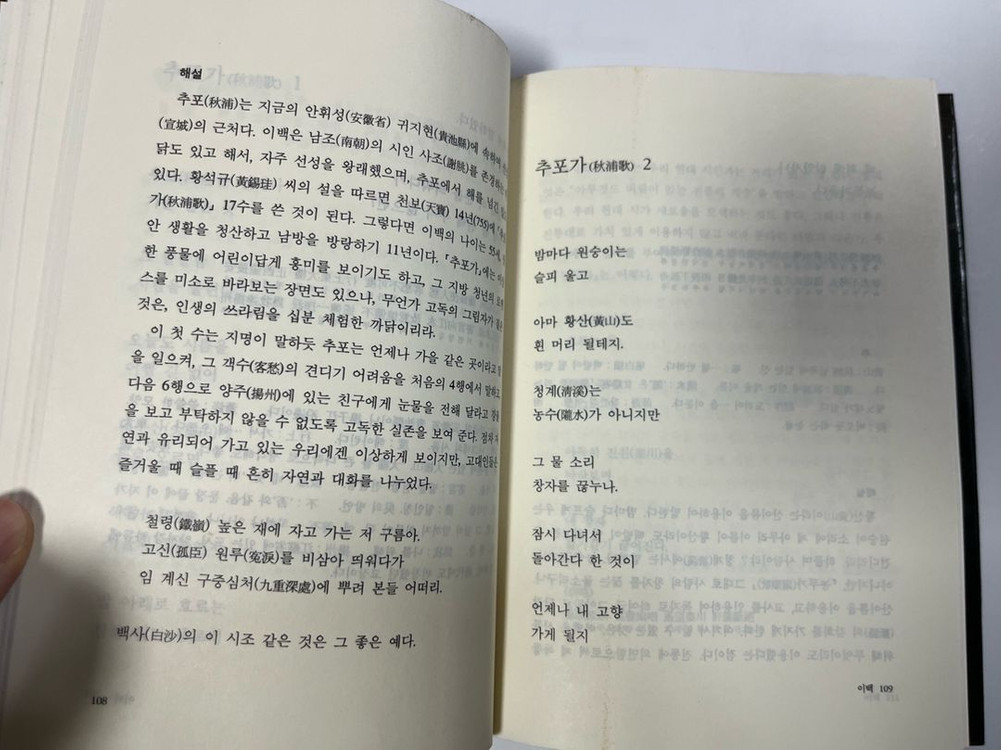 해설
추포(秋浦)는 지금의 안휘성(安徽省) 귀지현(貴池縣)에
(宣城)의 근처다. 이백은 남조(南朝)의 시인 사조(謝朓)를
닭도 있고 해서, 자주 선성을 왕래했으며, 추포에서 해를 넘긴
있다. 황석규(黃錫珪) 씨의 설을 따르면 천보(天寶) 14년(755)에
가(秋浦歌)」 17수를 쓴 것이 된다. 그렇다면 이백의 나이는 55세,
안 생활을 청산하고 남방을 방랑하기 11년이다. 「추포가」에는
한 풍물에 어린이답게 흥미를 보이기도 하고, 그 지방 청년의
스를 미소로 바라보는 장면도 있으나, 무언가 고독의 그림자가
것은, 인생의 쓰라림을 십분 체험한 까닭이리라.
이 첫 수는 지명이 말하듯 추포는 언제나 가을 같은 곳이라고
을 일으켜, 그 객수(客愁)의 견디기 어려움을 처음의 4행에서 말하고
다음 6행으로 양주(揚州)에 있는 친구에게 눈물을 전해 달라고
을 보고 부탁하지 않을 수 없도록 고독한 실존을 보여 준다. 점차
연과 유리되어 가고 있는 우리에겐 이상하게 보이지만, 고대인들은
즐거울 때 슬플 때 흔히 자연과 대화를 나누었다.
철령(鐵嶺) 높은 재에 자고 가는 저 구름아.
고신(孤臣) 원루(寃淚)를 비삼아 띄워다가
임 계신 구중심처(九重深處)에 뿌려 본들 어떠리.
백사(白沙)의 이 시조 같은 것은 그 좋은 예다.
108
추포가(秋浦歌) 2
밤마다 원숭이는
슬피 울고
아마 황산(黃山)도
흰 머리 될테지.
청계(淸溪)는
농수(隴水)가 아니지만
그 물 소리
창자를 끊누나.
잠시 다녀서
돌아간다 한 것이
언제나 내 고향
가게 될지
이백 109